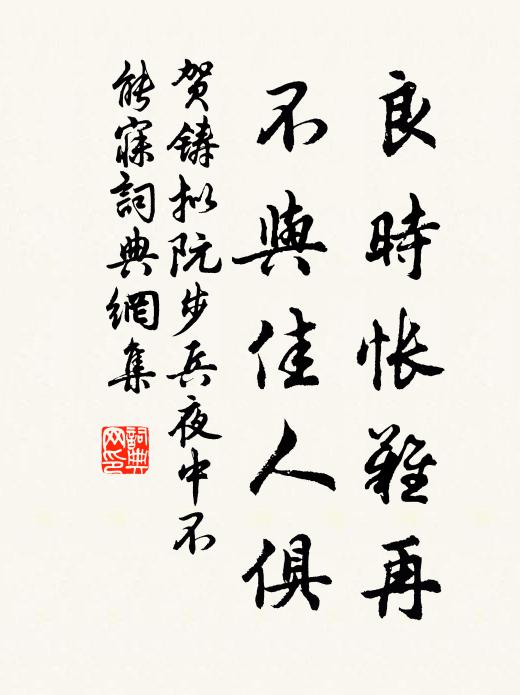 良時怅難再
不與佳人俱
贺鑄拟阮步兵夜中不
能寐詞典網集
詞典
网印